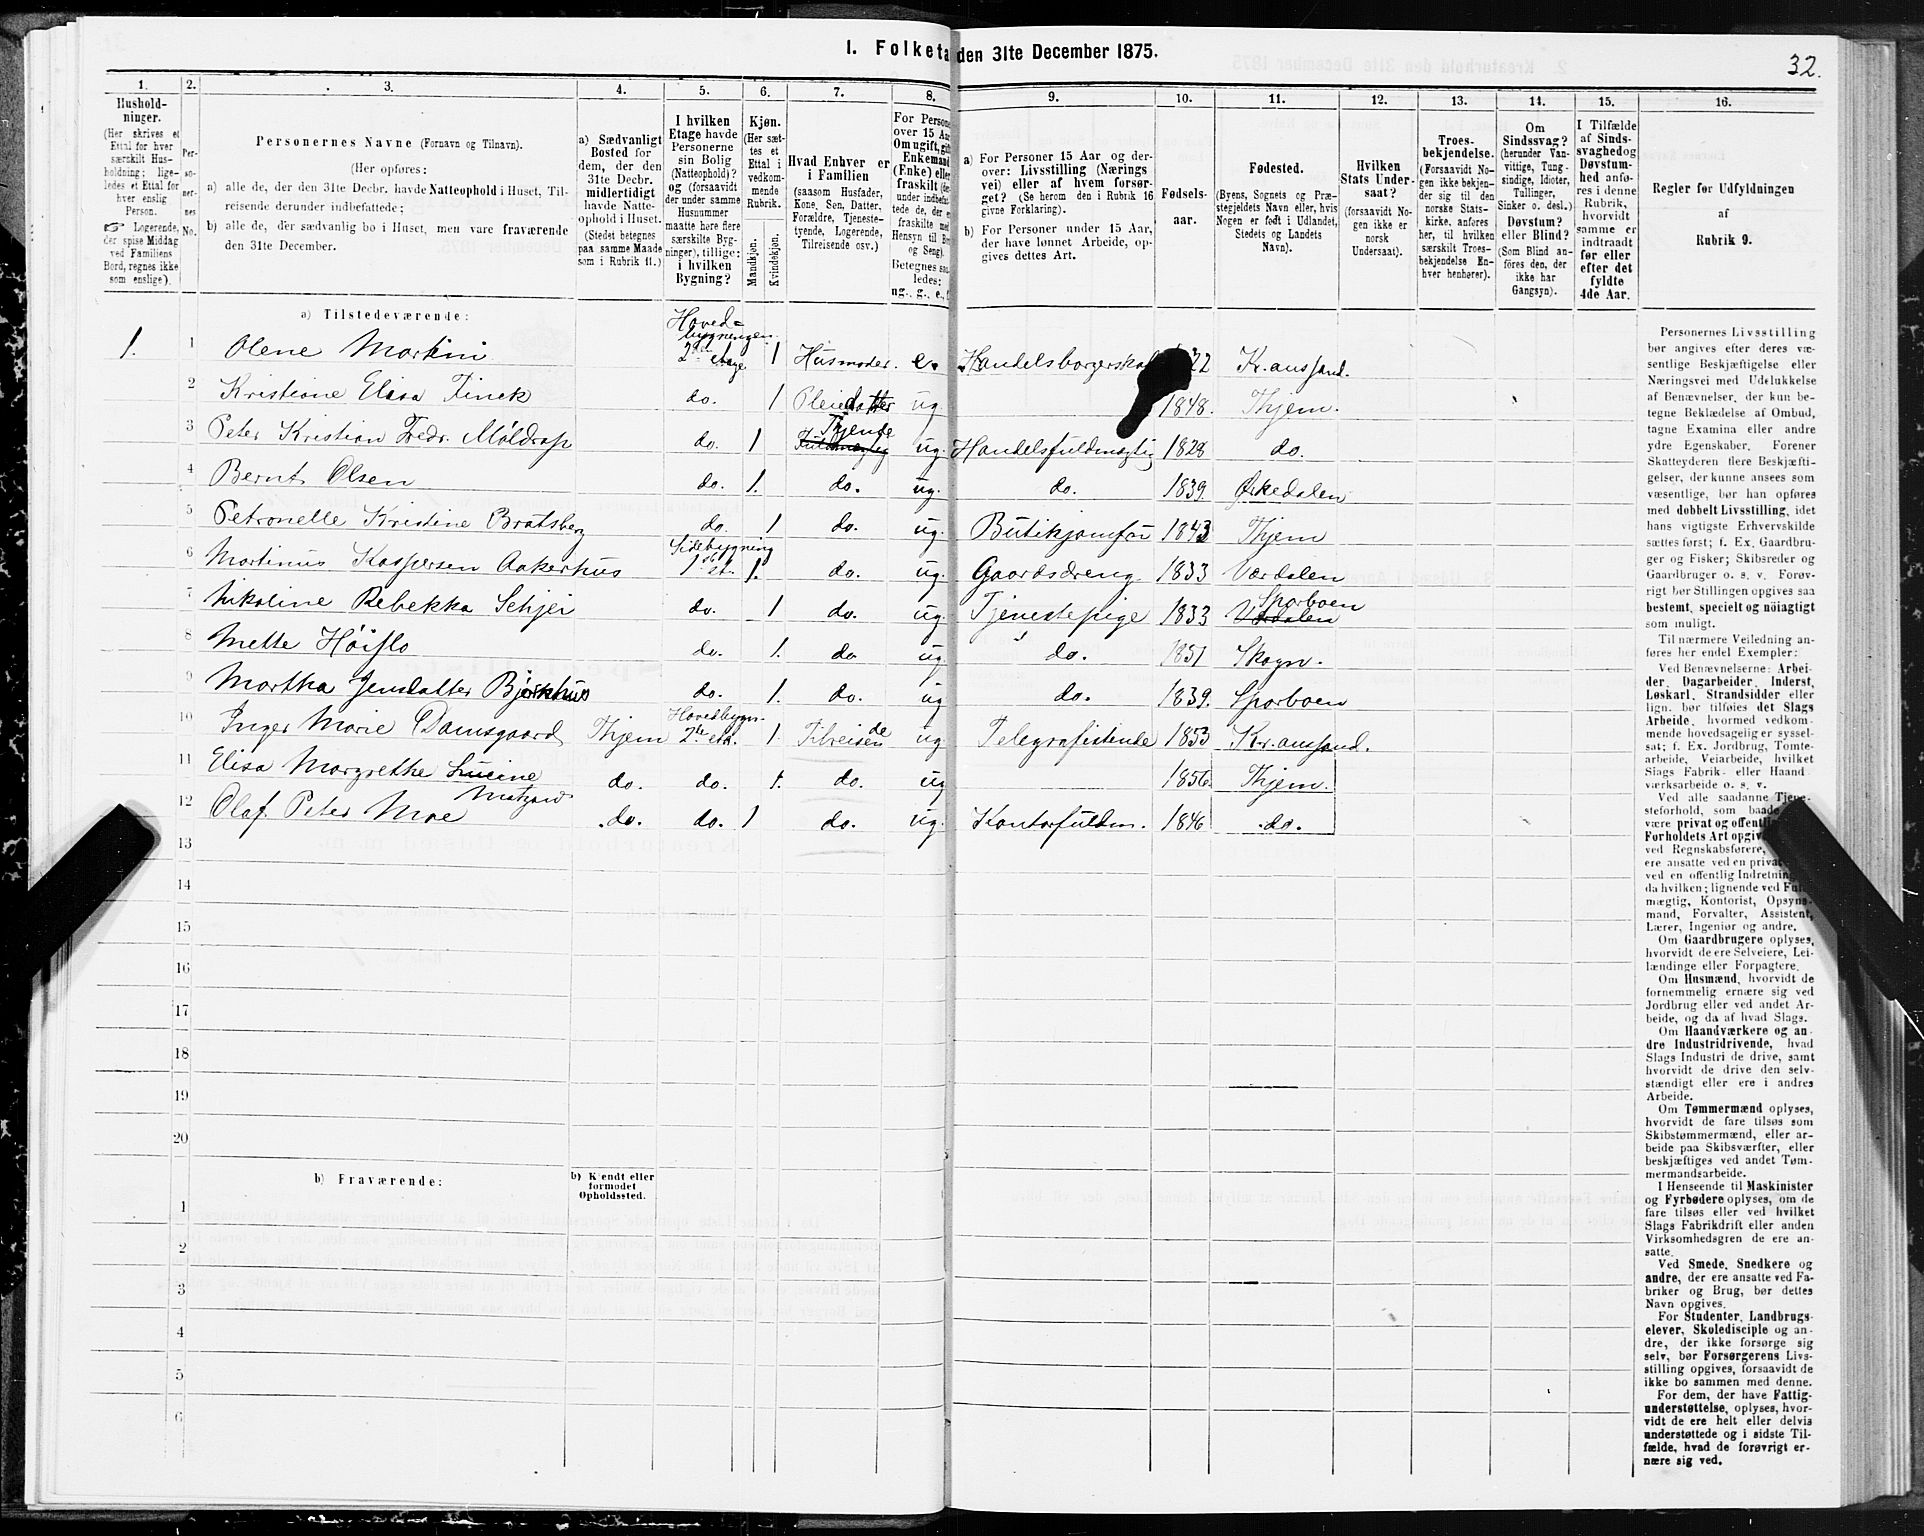 1. Folketa den 31te December 1875.
32.
1. 2. 3. 4. 5. 6. 7. 8. 9. 10. 11. 12. 13. 14. 15. 16.
Hushold-
ninger.
(Her skrives et
Ettal for hver
særskilt Hus-
holdning; lige-
ledes et Ettal for
hver enslig
Person.
☞ Logerende,
der spise Middag
ved Familiens
Bord, regnes ikke
som enslige).
Per-
so-
ner-
nes
No.
Personernes Navne (Fornavn og Tilnavn).
(Her opføres:
a) alle de, der den 31te Decbr. havde Natteophold i Huset, Til-
reisende derunder indbefattede;
b) alle de, der sædvanlig bo i Huset, men vare fraværende
den 31te December.
a) Sædvanligt
Bosted for
dem, der den
31te Decbr.
midlertidigt
havde Natte-
ophold i Huset.
(Stedet betegnes
paa samme Maade
som i Rubrik 11.)
I hvilken
Etage havde
Personerne
sin Bolig
(Natteophold)?
og (forsaavidt
der under samme
Husnummer
maatte høre flere
særskilte Byg-
ninger), tillige:
i hvilken
Bygning?
Kjøn.
(Her sæt-
tes et
Ettal i
vedkom-
mende
Rubrik.
Mandkjøn.
Kvindekjøn.
Hvad Enhver er
i Familien
(saasom Husfader,
Kone, Søn, Datter,
Forældre, Tjeneste-
tyende, Logerende,
Tilreisende osv.)
For Person
over 15 Aa
Om ugift, gift
Enkemand
(Enke) elle
fraskilt (de
under indbefat-
tede de, der e
fraskilte me
Hensyn til Bo
og Seng).
Betegnes saa
ledes:
ug., g., e., f
a) For Personer 15 Aar og der-
over: Livsstilling (Nærings
vei) eller af hvem forsør-
get? (Se herom den i Rubrik 16
givne Forklaring).
b) For Personer under 15 Aar,
der have lønnet Arbeide, op-
gives dettes Art.
Fødsels-
aar.
Fødested.
(Byens, Sognets og Præ-
stegjeldets Navn eller, hvis
Nogen er født i Udlandet,
Stedets og Landets
Navn).
Hvilken
Stats Under-
saat?
(forsaavidt No-
gen ikke er
norsk
Undersaat).
Troes-
bekjendelse.
(Forsaavidt No-
gen ikke bekjen-
der sig til den
norske Stats-
kirke, anføres
her, til hvilken
særskilt Troes-
bekjendelse En-
hver henhører).
Om
Sindssvag?
(herunder Van-
vittige, Tung-
sindige, Idioter,
Tullinger,
Sinker o. desl.)
Døvstum?
eller Blind?
(Som Blind an-
føres den, der
ikke har
Gangsyn).
I Tilfælde
af Sinds-
svaghed og
Døvstum-
hed anfø-
res i denne
Rubrik,
hvorvidt
samme er
indtraadt
før eller
efter det
fyldte
4de Aar.
Regler for Udfyldningen
af
Rubrik 9.
a) Tilstedeværende:
Hoved-
bygningen
1. 1 Olene Martini 2den etage 1 Husmoder e. Handelsborgerskab 22 Kr.anssand.
2 Kristiane Elisa Finck do. 1 Pleiedatter ug. 1848. Thjem.
Tjende
3 Peter Kristian Fredr. Möldrup do. 1 ug. Handelsfuldmægtig 1828 do.
4 Bernt Olsen do. 1. do. ug. do. 1839. Ørkedalen
5 Petronelle Kristine Bratsberg do. 1 do. ug. Butikjomfru 1843 Thjem
Sidebygning
6 Martinus Kaspersen Aakerhus 1 et. 1. do. ug. Gaardsdreng. 1833 Værdalen
Sparboen
7 Nikoline Rebekka Schjei do. 1 do. ug. Tjenestepige 1833 Værdalen
8 Mette Höiflo do. 1. do ug. do. 1851 Skogn.
9 Martha Jensdatter Bjørkhus do. 1. do. ug do. 1839. Sparboen
Hovedbygn.
10 Inger Marie Damsgaard Thjem 2te eta. 1. Tilreisende ug Telegrafistinde 1853 Kr.anssand.
11 Elisa Margrethe Lucine do. do. 1. do. ug 1856. Thjem.
12 Olaf Peter Moe do. do. 1 do. ug. Kontorfuldm. 1846 do.
13
14
15
16
17
18
19
20
b) Fraværende:
b) Kjendt eller
formodet
Opholdssted.
1
2
3
4
5
6
Personernes Livsstilling
bør angives efter deres væ-
sentlige Beskjæftigelse eller
Næringsvei med Udelukkelse
af Benævnelser, der kun be-
tegne Beklædelse af Ombud,
tagne Examina eller andre
ydre Egenskaber. Forener
Skatteyderen flere Beskjæfti-
gelser, der kunne ansees som
væsentlige, bør han opføres
med dobbelt Livsstilling, idet
hans vigtigste Erhvervskilde
sættes først; f. Ex. Gaardbru-
ger og Fisker; Skibsreder og
Gaardbruger o. s. v. Forøv-
rigt bør Stillingen opgives saa
bestemt, specielt og nöiagtigt
som muligt.
Til nærmere Veiledning an-
føres her endel Exempler:
Ved Benævnelserne: Arbei-
der, Dagarbeider, Inderst,
Løskarl, Strandsidder eller
lign. bør tilføies det Slags
Arbeide, hvormed vedkom-
mende hovedsagelig er syssel-
sat; f. Ex. Jordbrug, Tomte-
arbeide, Veiarbeide, hvilket
Slags Fabrik- eller Haand
værksarbeide o. s. v.
Ved alle saadanne Tjene-
steforhold, som baade
være privat og offentlig
Forholdets Art opgives
ved Regnskabsførere,
ere ansatte ved en privat
ved en offentlig Indretning
da hvilken; lignende ved Fuld-
mægtig, Kontorist, Opsyns-
mand, Forvalter, Assistent,
Lærer, Ingeniør og andre.
Om Gaardbrugere oplyses,
hvorvidt de ere Selveiere, Lei-
lændinge eller Forpagtere.
Om Husmænd, hvorvidt de
fornemmelig ernære sig ved
Jordbrug eller ved andet Ar-
beide, og da af hvad Slags.
Om Haandværkere og an
dre Industridrivende, hvad
Slags Industri de drive, samt
hvorvidt de drive den selv-
stændigt eller ere i andres
Arbeide.
Om Tømmermænd oplyses,
hvorvidt de fare tilsøs som
Skibstømmermænd, eller ar-
beide paa Skibsværfter, eller
beskjæftiges ved andet Tøm-
mermandsarbeide.
I Henseende til Maskinister
og Fyrbødere oplyses, om de
fare tilsøs eller ved hvilket
Slags Fabrikdrift eller anden
Virksomhedsgren de ere an-
satte.
Ved Smede, Snedkere og
andre, der ere ansatte ved Fa-
briker og Brug, bør dettes
Navn opgives.
For Studenter, Landbrugs-
elever, Skoledisciple og an-
dre, der ikke forsørge sig
selv, bør Forsørgerens Livs-
stilling opgives, forsaavidt de
ikke bo sammen med denne.
For dem, der have Fattig-
understøttelse, oplyses, hvor-
vidt de ere helt eller delvis
understøttede og i sidste Til-
fælde, hvad de forøvrigt er-
nære sig ved.